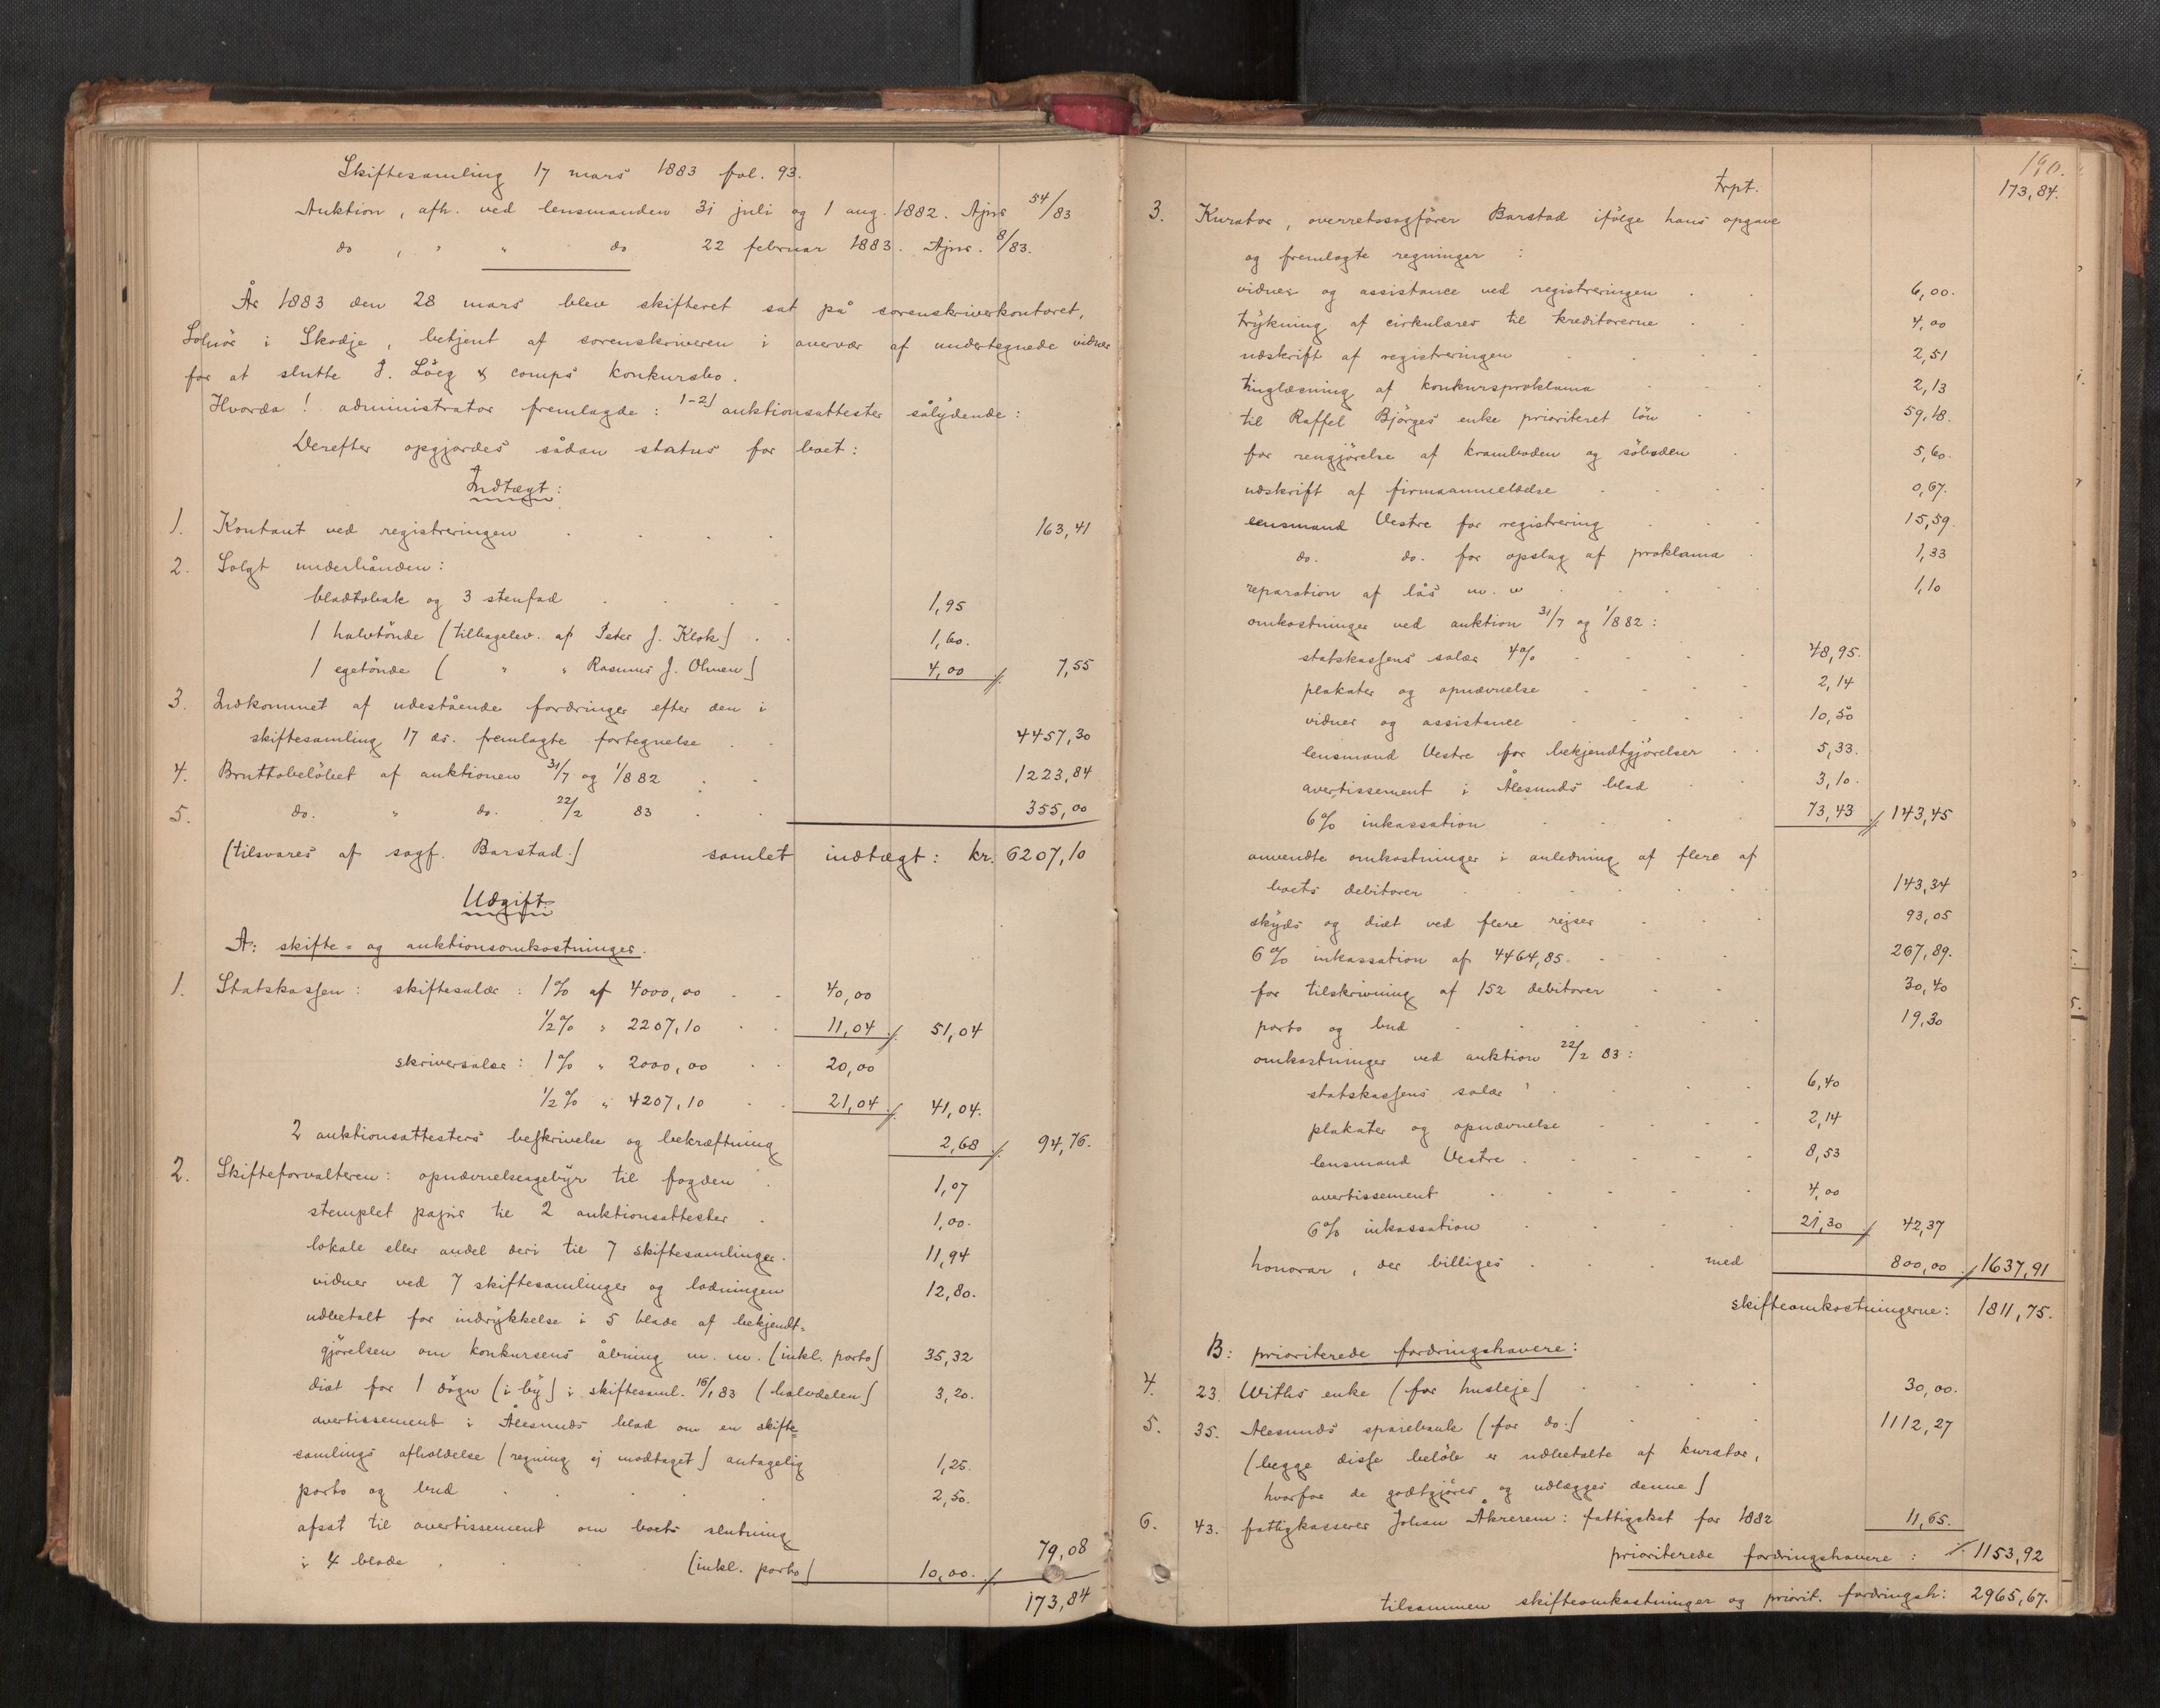 Skiftesamling 17 mars 1883 fol. 93.
Auktion, afh. ved lensmanden 31 juli og 1 aug. 1882. Ajnr 54/83
do , " " do 22 februar 1883. Ajnr. 8/83.
År 1883 den 28 mars blev skifteret sat på sorenskriverkontoret,
Solnör i Skodje, betjent af sorenskriveren i overvær af undertegnede vidner
for at slutte J. Löeg & comps konkursbo.
Hvorda! administrator fremlagde: 1-2) auktionsattester sålydende:
Derefter opgjordes sådan status for boet:
Indtægt:
1. Kontant ved registreringen . . . . 163,41
2. Solgt underhånden:
bladtobak og 3 stenfad . . . . 1,95
1 halvtönde (tilbagelev. af Peter J. Klok) . . 1,60.
1 egetönde ( " " Rasmus J. Olmen) 4,00 /. 7,55
3. Indkommet af udestående fordringer efter den i
skiftesamling 17 ds. fremlagte fortegnelse . . 4457,30
4. Bruttobelöbet af auktionen 31/7 og 1/8 82 . . 1223,84
5. do. " do. 22/2 83 . . 355,00
(tilsvares af sagf. Barstad.) samlet indtægt: kr. 6207,10
Udgift:
A: skifte- og auktionsomkostninger.
1. Statskassen: skiftesalær: 1% af 4000,00 . . 40,00
1/2% " 2207,10 . . 11,04 /. 51,04
skriversalær: 1% " 2000,00 . . 20,00
1/2% " 4207,10 . . 21,04 /. 41,04.
2 auktionsattesters beskrivelse og bekræftning 2,68 /. 94,76.
2. Skifteforvalteren: opnævnelsesgebyr til fogden . 1,07
stemplet papir til 2 auktionsattester . 1,00.
lokale eller andel deri til 7 skiftesamlinger. 11,94
vidner ved 7 skiftesamlinger og lodningen 12,80.
udbetalt for indrykkelse i 5 blade af bekjendt-
gjörelsen om konkursens åbning m. m. (inkl. porto) 35,32
diæt for 1 dögn (i by) i skiftesaml. 16/1 83 (halvdelen) 3,20.
avertissement i Ålesunds blad om en skifte-
samlings afholdelse (regning ej modtaget) antagelig 1,25.
porto og bud . . . . 2,50.
afsat til avertissement om boets slutning
i 4 blade . . . (inkl. porto) 10,00. /. 79,08
173,84
190.
trpt. 173,84.
3. Kurator, overretssagförer Barstad ifölge hans opgave
og fremlagte regninger :
vidner og assistance ved registreringen . . 6,00.
trykning af cirkulærer til kreditorerne . . 4,00
udskrift af registreringen . . . . 2,51
tinglæsning af konkursproklama . . . 2,13
til Raffel Björges enke prioriteret lön . . 59,18.
for rengjörelse af kramboden og söboden . 5,60.
udskrift af firmaanmeldelse . . . . 0,67.
lensmand Vestre for registrering . . . 15,59.
do. do. for opslag af proklama . 1,33
reparation af lås m. v. . . . . 1,10
omkostninger ved auktion 31/7 og 1/8 82:
statskassens salær 4% . . . . 48,95.
plakater og opnævnelse . . . . 2,14
vidner og assistance . . . . 10,50
lensmand Vestre for bekjendtgjörelser . . 5,33.
avertissement i Ålesunds blad . . 3,10.
6% inkassation . . . . 73,43 /. 143,45
anvendte omkostninger i anledning af flere af
boets debitorer . . . . . . 143,34
skyds og diæt ved flere rejser . . . 93,05
6% inkassation af 4464,85. . . . 267,89.
for tilskrivning af 152 debitorer . . . 30,40
porto og bud . . . . . . 19,30
omkostninger ved auktion 22/2 83:
statskassens salær . . . . 6,40
plakater og opnævnelse . . . . 2,14
lensmand Vestre . . . . . 8,53
avertissement . . . . . 4,00
6% inkassation . . . . 21,30 /. 42,37
honorar, der billiges . . . . med 800,00 /. 1637,91
skifteomkostningerne: 1811,75.
B: prioriterede fordringshavere:
4. 23. Withs enke (for husleje) . . . . 30,00.
5. 35. Alesunds sparebank (for do.) . . . 1112,27
(begge disse belöb er udbetalte af kurator,
hvorfor de godtgjöres og udlægges denne)
6. 43. fattigkasserer Johan Åkrerem: fattigskat for 1882 11,65.
prioriterede fordringshavere: /. 1153,92
tilsammen skifteomkostninger og priorit. fordringsh: 2965,67.